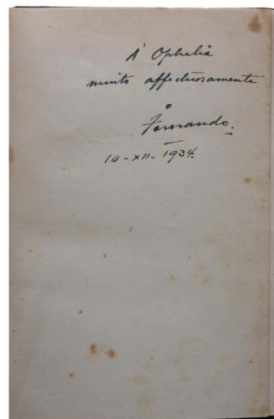 Á Ophelia
muito affectuosamente
o
Fernando.
10-XII-1934.